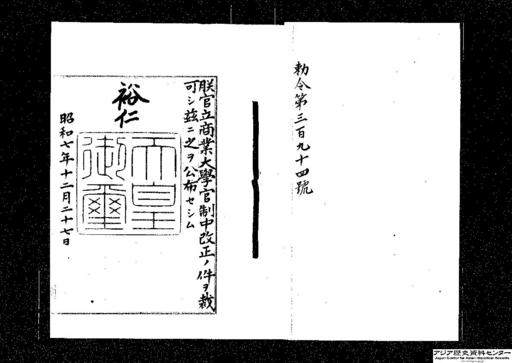 勅令第三百九十四號
朕官立商業大學官制中改正ノ件ヲ裁
可シ茲ニ之ヲ公布セシム
裕仁
天皇
御璽
昭和七年十二月二十七日
アジア歴史資料センター
Japan Center for Asian Historical Records